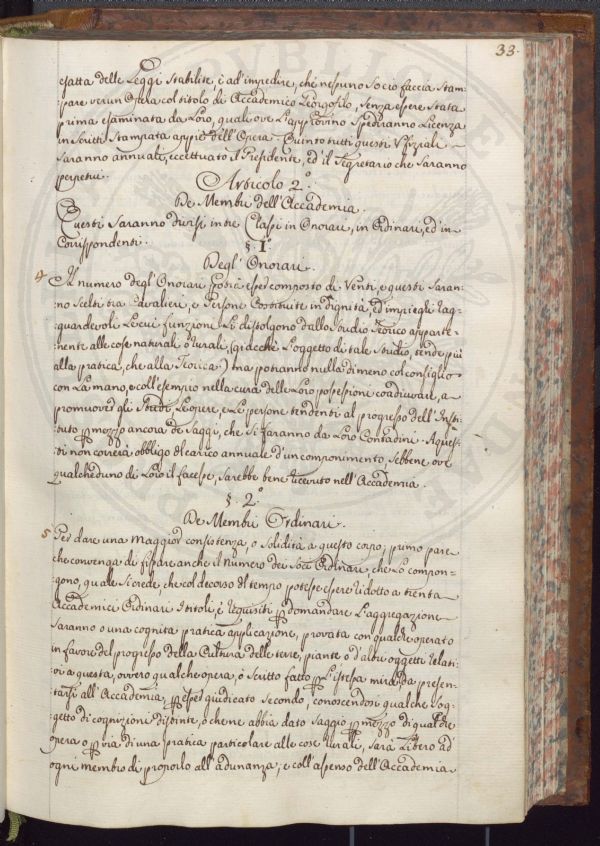 33.
esatta delle Leggi Stabilite e ad impedire, che nessuno Socio faccia Stam-
pare verun Opera col titolo di Accademico Georgofilo, Senza essere Stata
prima esaminata da Loro, quali ove L'approvino Spediranno Licenza
in Scritti Stampata appiè dell'Opera. Quinto tutti questi Uffiziali
Saranno annuali, eccettuato il Presidente, ed il Segretario che Saranno
perpetui.
Articolo 2.°
De Membri dell'Accademia.
Questi Saranno divisi in tre Classi in Onorari, in Ordinari, ed in
Corrispondenti.
§. 1.°
Degl'Onorari.
4 Il numero degl'Onorari potrà esser composto di Venti, e questi Saran-
no Scelti tra Cavalieri, e Persone Costituite in dignità, ed impieghi rag-
guardevoli Le cui funzioni Li distolgono dallo Studio Teorico apparte-
nente alle cose naturali o rurali, (giacchè L'oggetto di tale Studio, tende più
alla pratica, che alla Teorica) ma potranno nulla di meno col consiglio
con La mano, e coll'esempio nella cura delle Loro possessioni coadiuvare, a
promuovere gli Studi Le opere, e Le persone tendenti al progresso dell'Insti-
tuto p mezzo ancora de Saggi, che Si faranno da Loro Contadini. A ques-
ti non correrà obbligo del carico annuale d'un componimento, Sebbene ove
qualcheduno di Loro il facesse, Sarebbe bene ricevuto nell'Accademia.
§. 2.°
De Membri Ordinari.
5 Per dare una maggior consistenza, o Solidità a questo corpo, primo pare
che convenga di fissare anche il numero dei Soci Ordinari che Lo compon-
gono, quale Si crede, che col decorso del tempo potesse essere ridotto a trenta
Accademici Ordinari I titoli, e requisiti p domandare L'aggregazione
Saranno o una cognita pratica applicazione, provata con qualche operato
in favore del progresso della Cultura delle terre, piante o d'altri oggetti relati-
vi a questa, ovvero qualche opera, o Scritto fatto p L'istessa mira da presen-
tarsi all'Accademia, p esser giudicato Secondo, conoscendosi qualche Sog-
getto di cognizione distinte, o che ne abbia dato Saggio p mezzo di qualche
opera o p via di una pratica particolare alle cose rurali, Sarà Libero ad
ogni membro di proporlo all'adunanza, e coll'assenso dell'Accademia